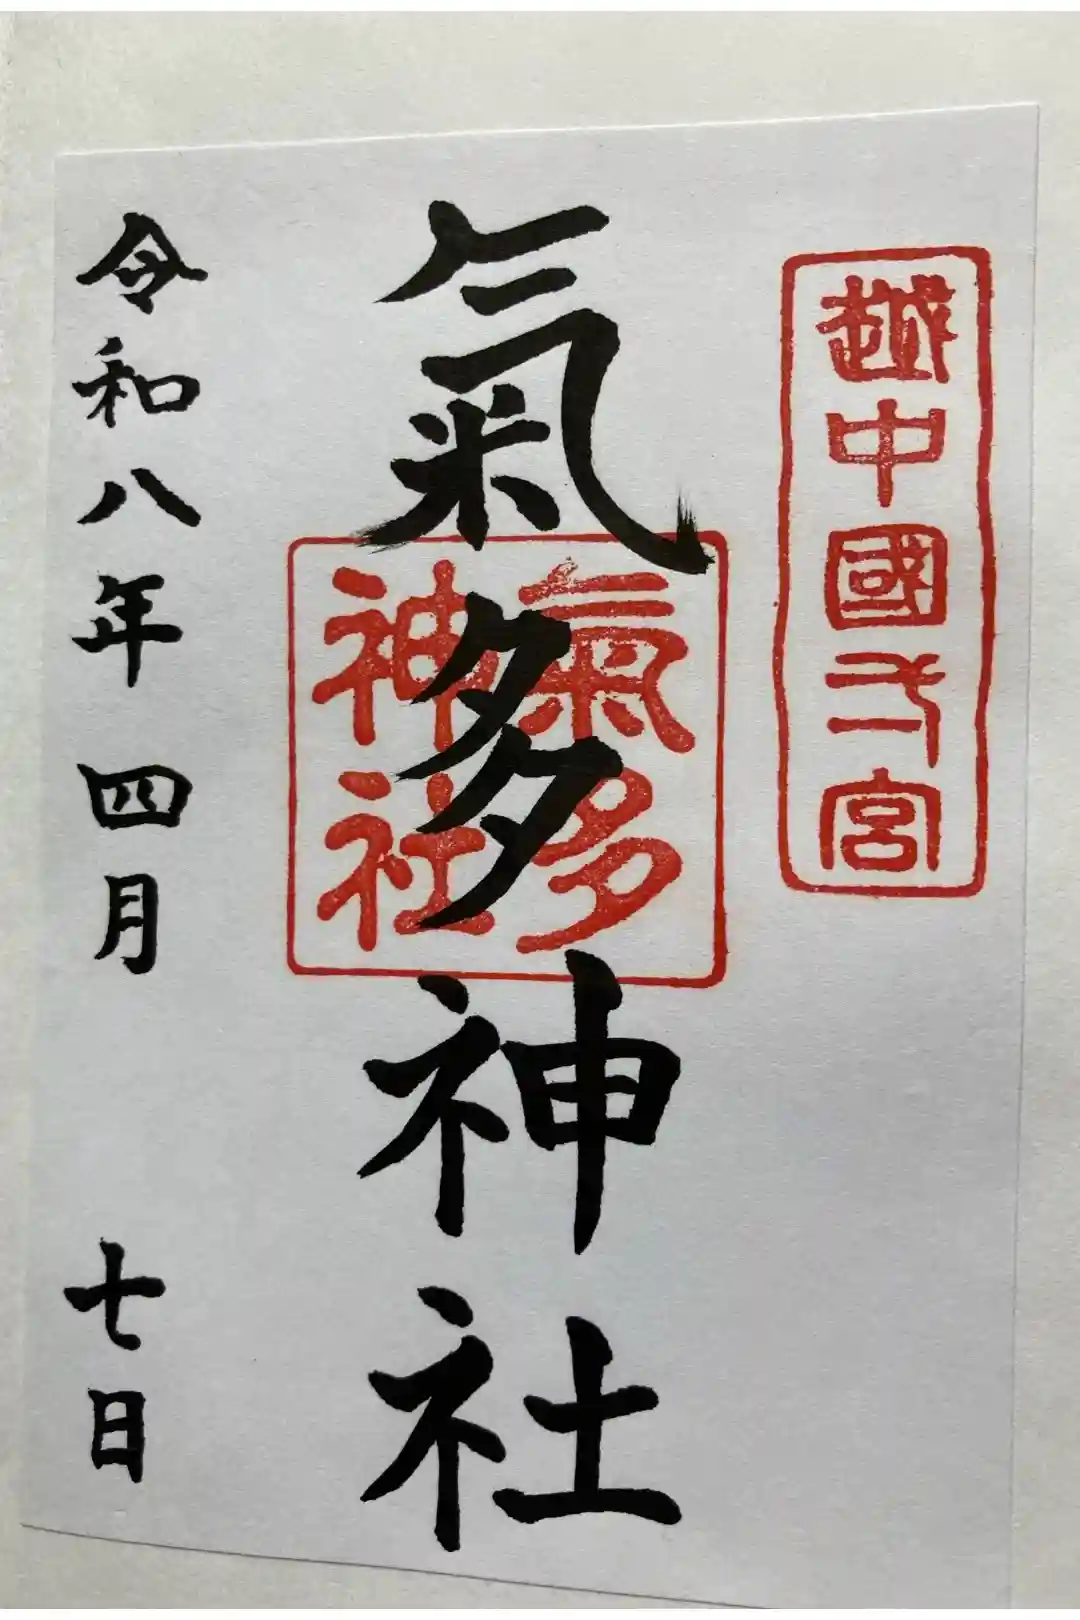 越中國弌宮
氣多神社
氣多
神社
令和八年四月七日